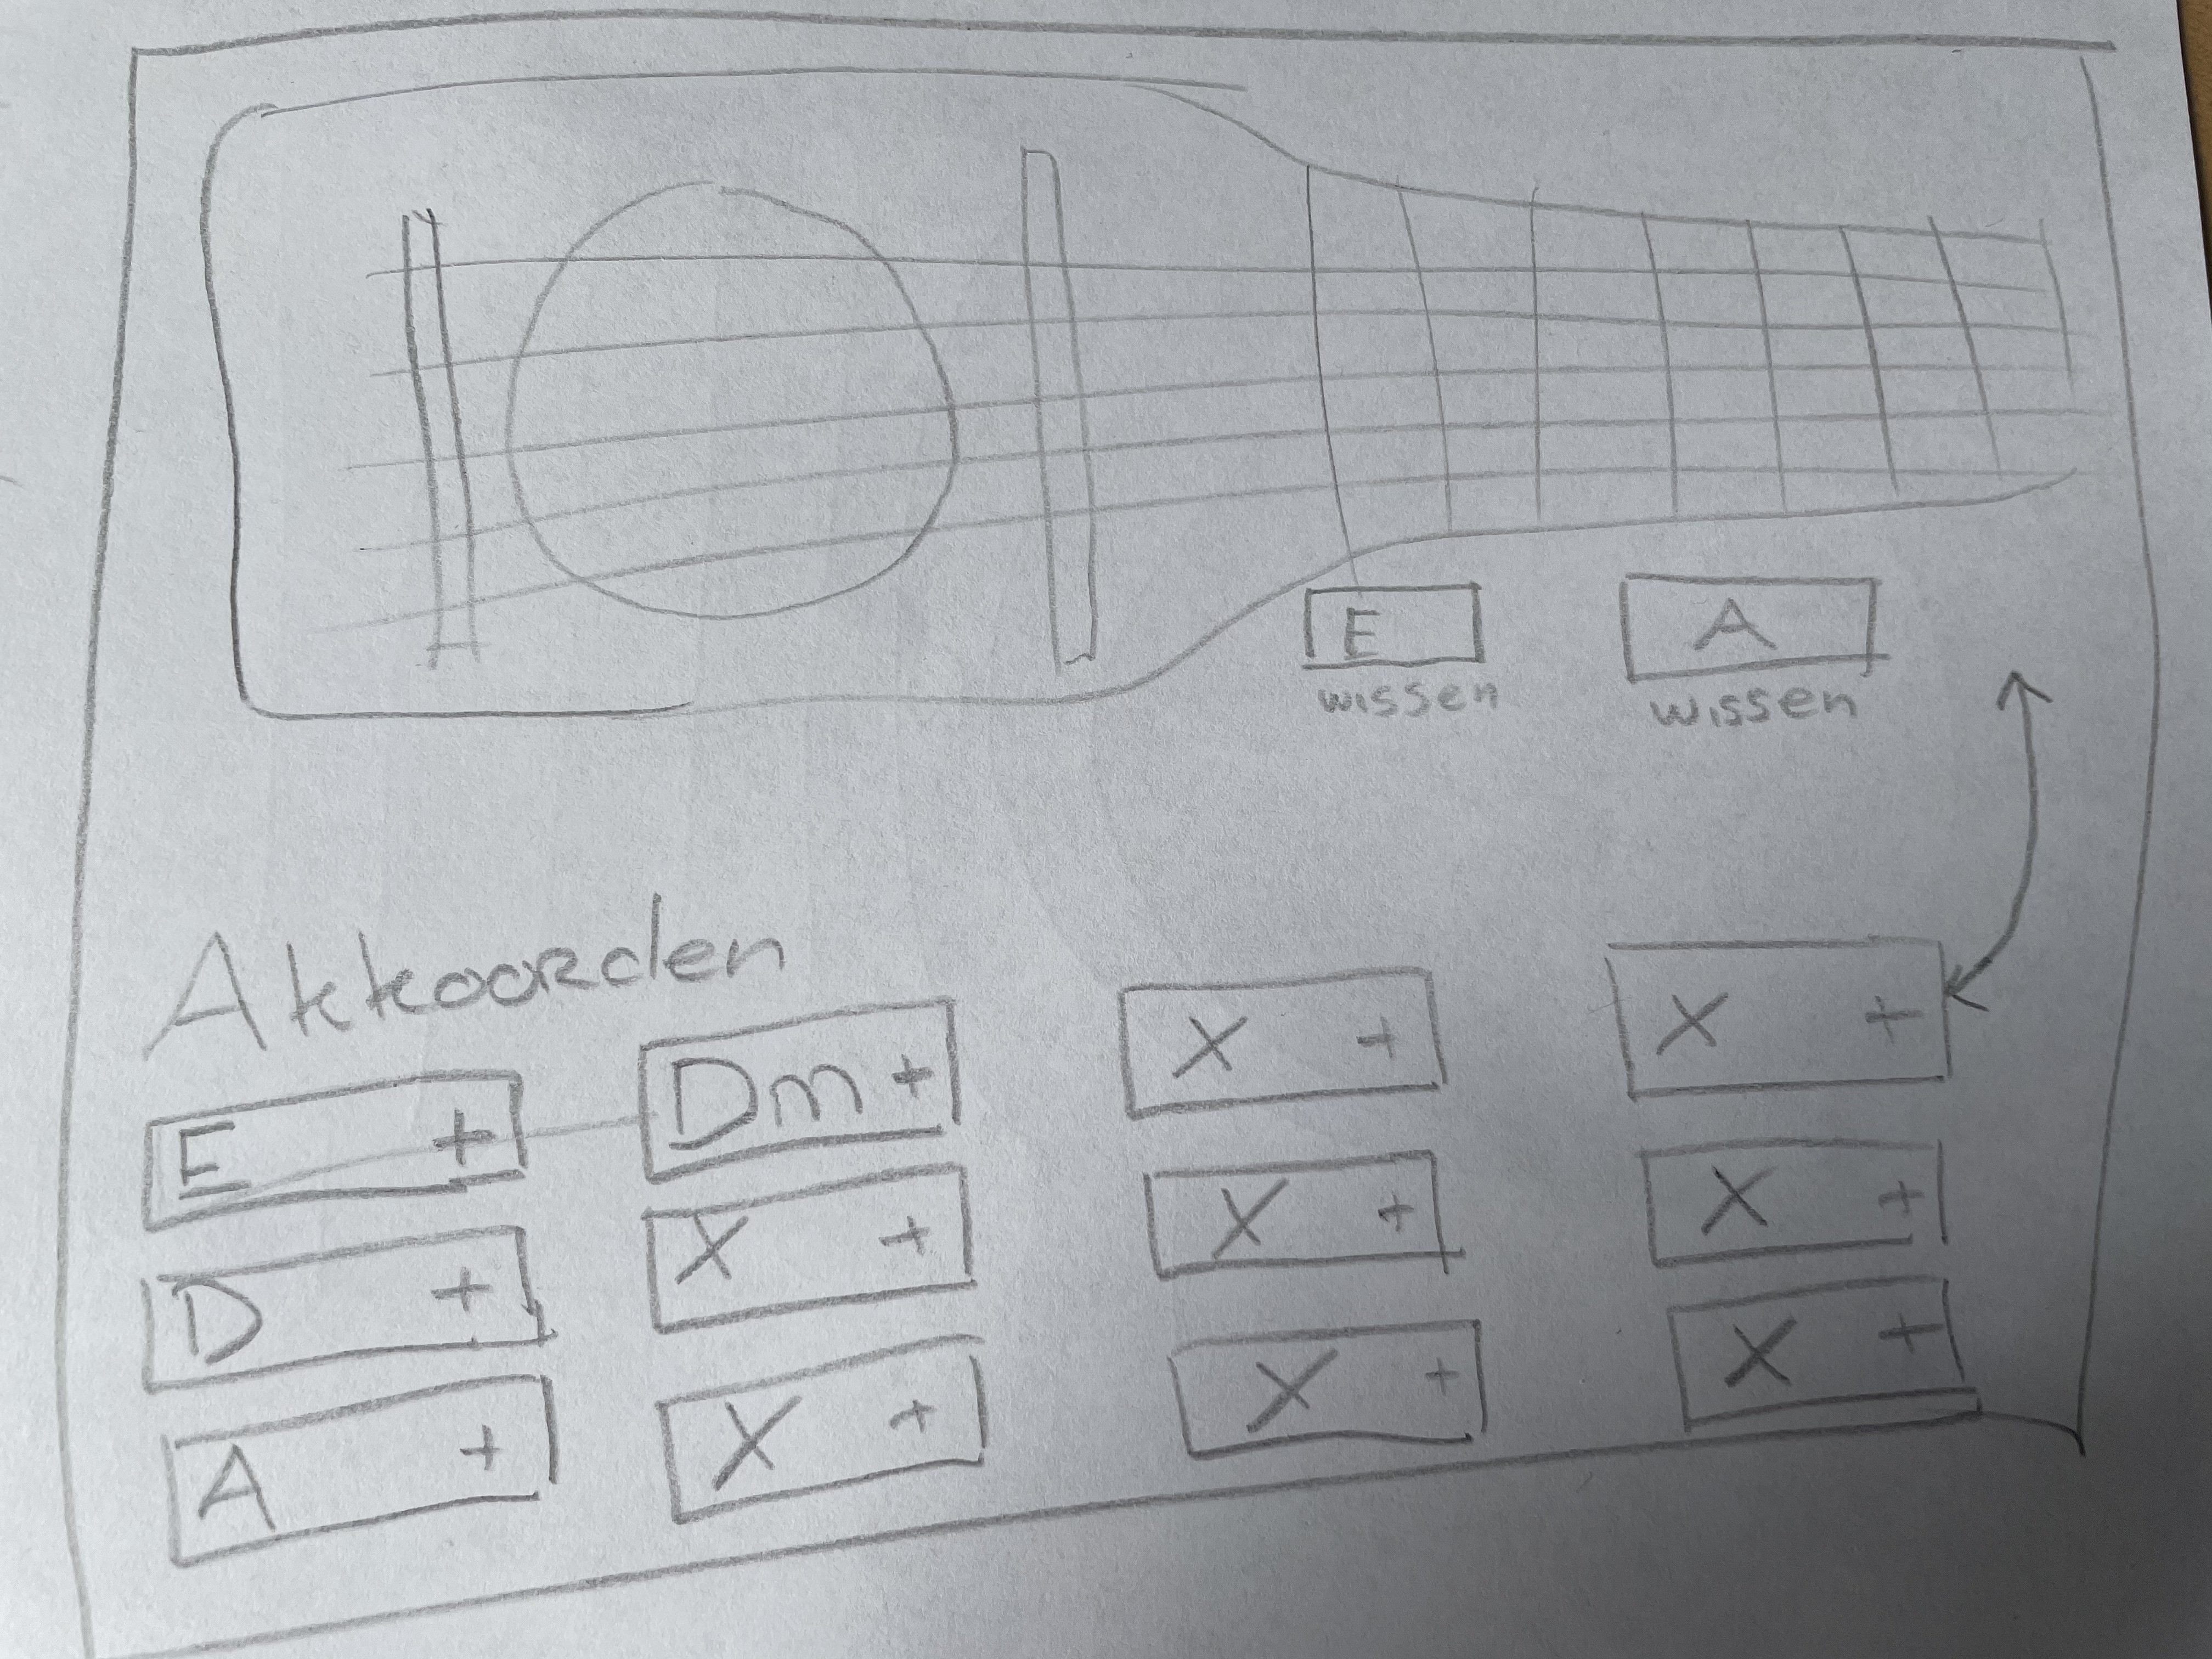 E A
wissen wissen
Akkoorden
E + Dm + X + X +
D + X + X + X +
A + X + X + X +